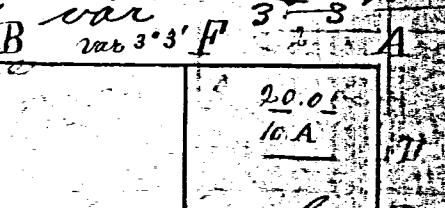 var 3 - 3
B var 3° 3' F A
20.0
10. A